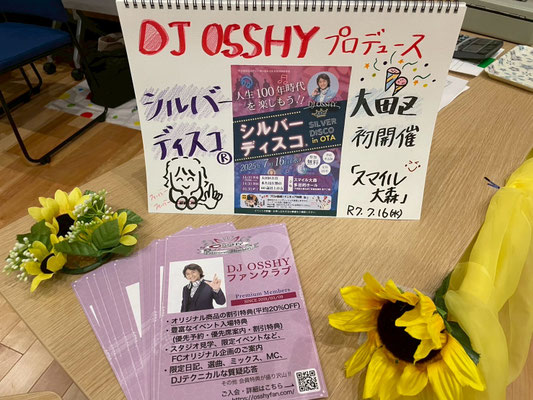 DJ OSSHY プロデュース
シルバー
ディスコ®
人生100年時代
を楽しもう!!
DJ OSSHY
シルバー
ディスコ
SILVER
DISCO
in OTA
2025 7.16
無料
スマイル大森
大田区
初開催
「スマイル
大森」
R7.7.16(水)
DJ OSSHY
ファンクラブ
Premium Members
・オリジナル商品の割引特典(平均20%OFF)
・豊富なイベント入場特典
(優先予約・優先席案内・割引特典)
・スタジオ見学、限定イベントなど、
FCオリジナル企画のご案内
・限定日記、選曲、ミックス、MC、
DJテクニカルな質疑応答
その他 会員特典が盛り沢山!!
ご入会・詳細はこちら
https://osshyfan.com/